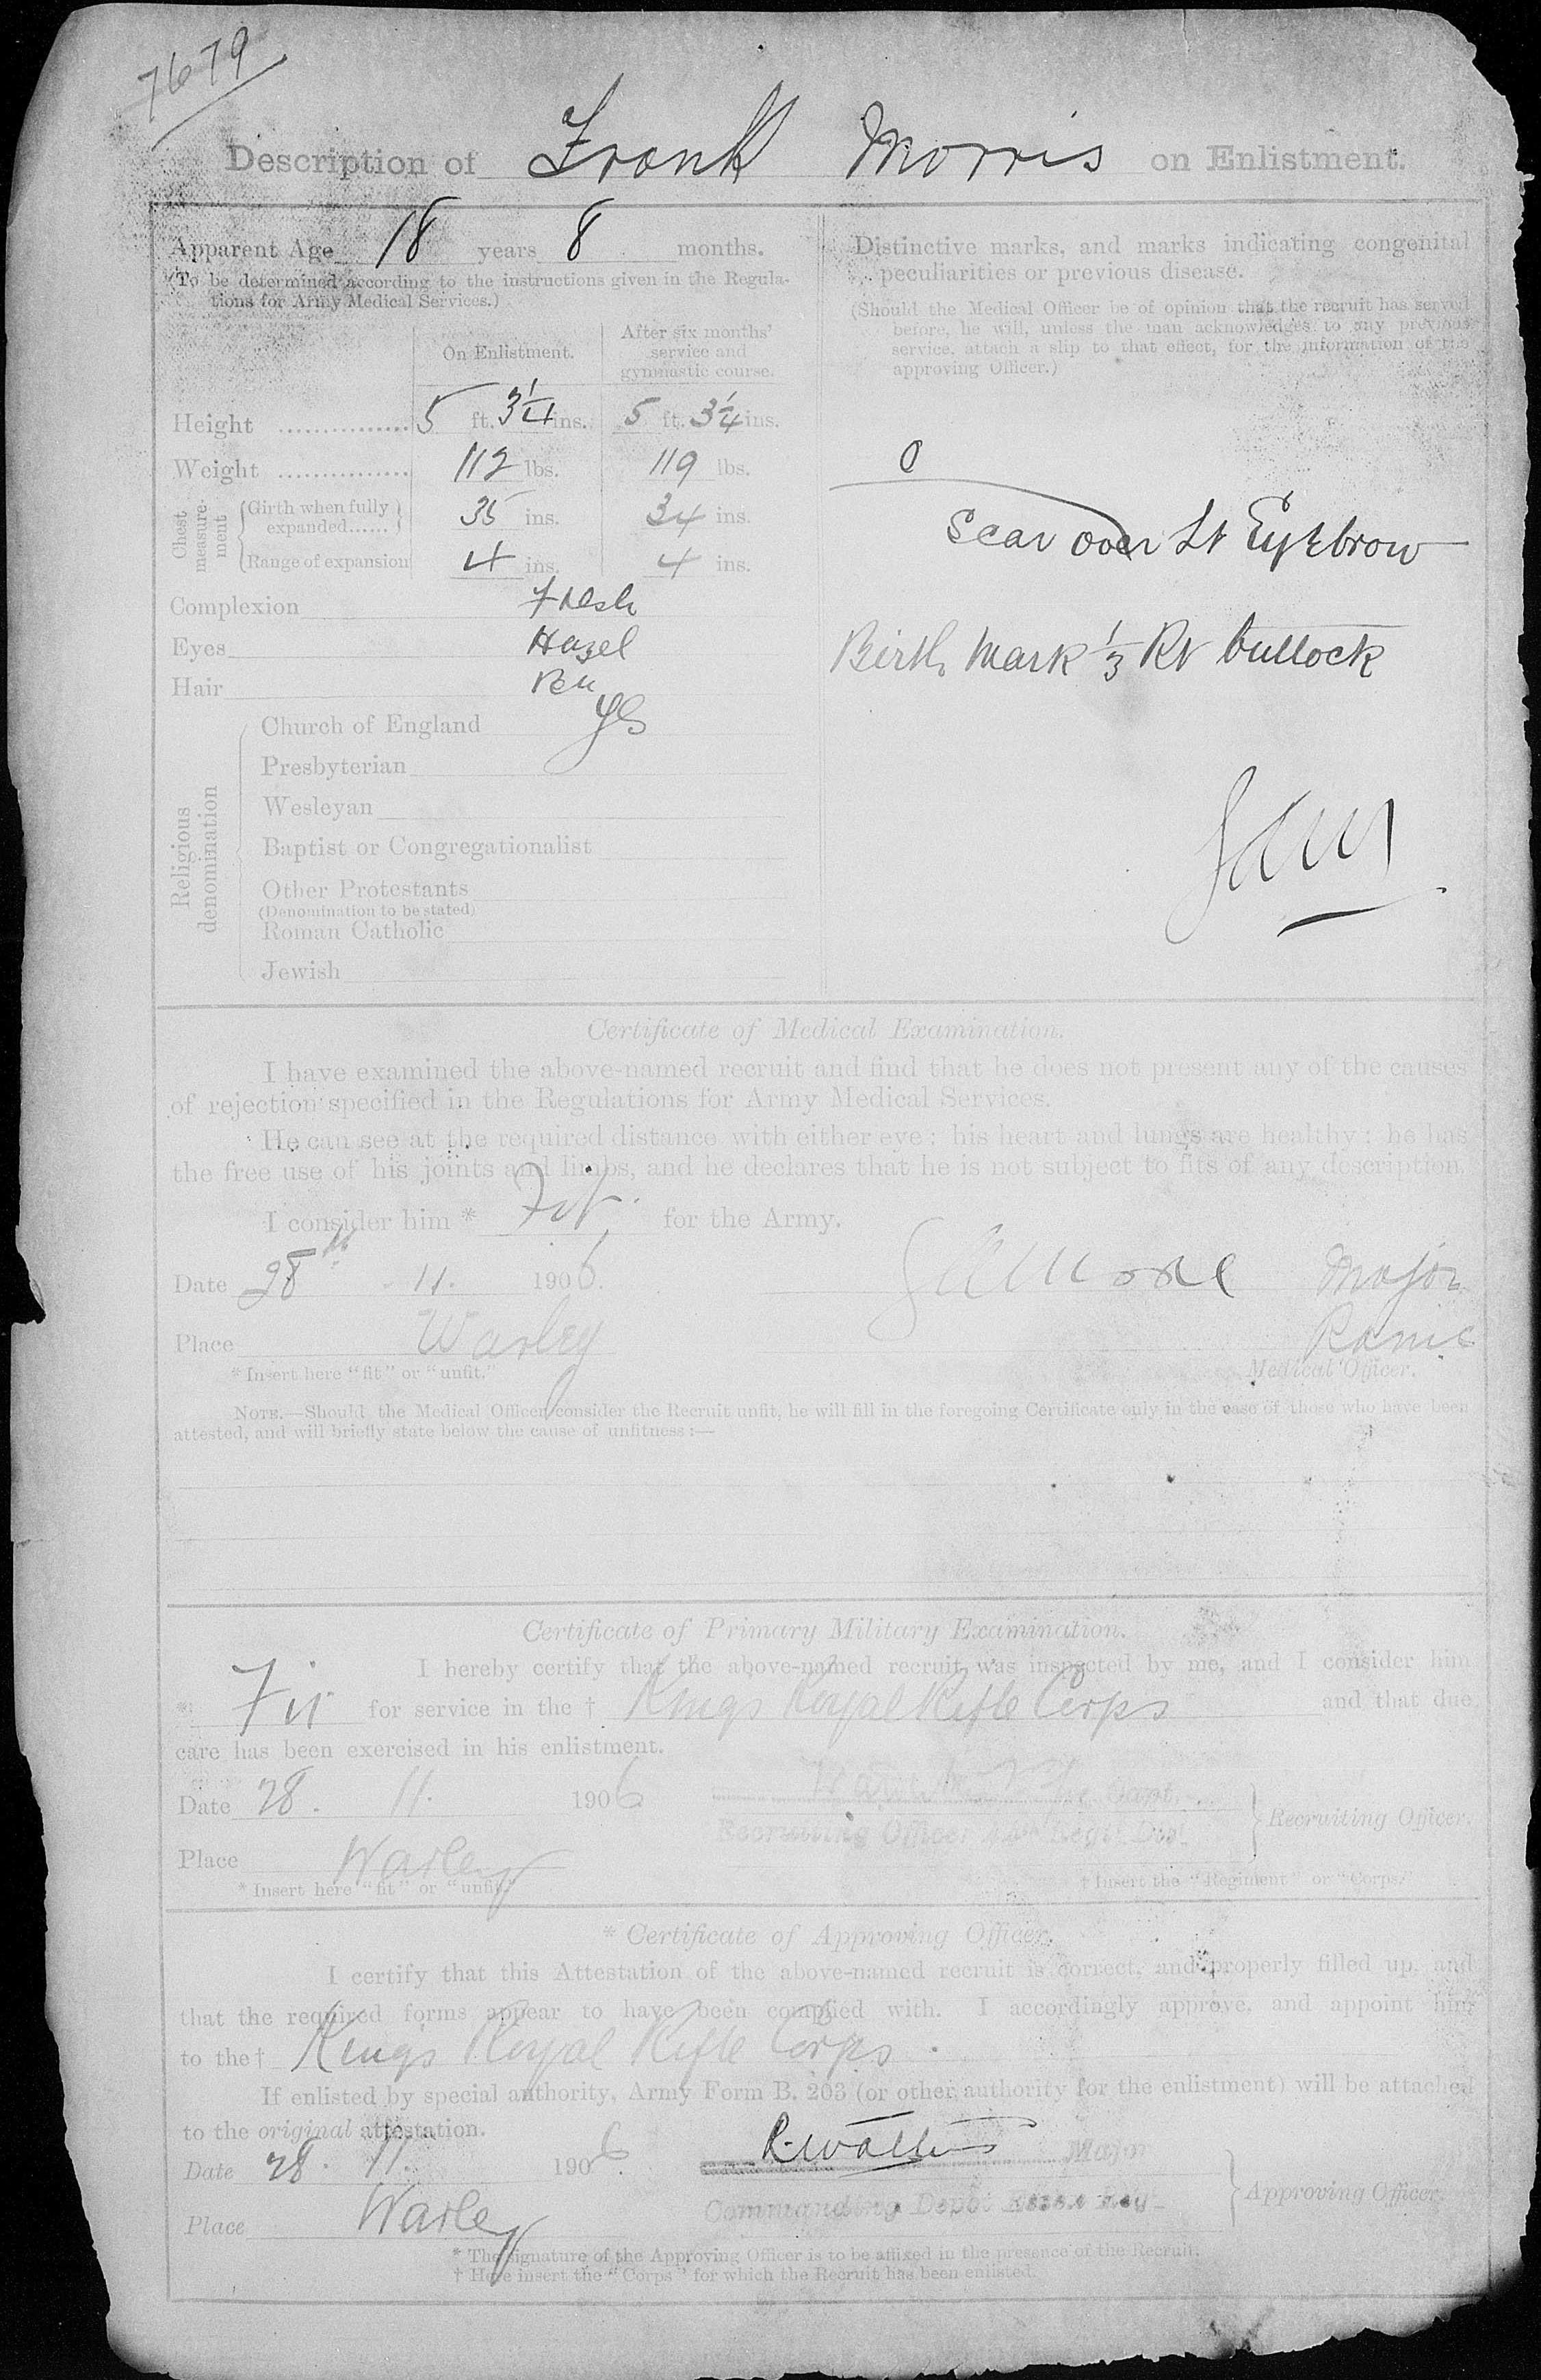 7679
Description of Frank Morris on Enlistment.
Apparent Age 18 years 8 months.
(To be determined according to the instructions given in the Regula-
tions for Army Medical Services.)
On Enlistment.
After six months'
service and
gymnastic course.
Height 5 ft. 3 1/4 ins. 5 ft. 3 1/4 ins.
Weight 112 lbs. 119 lbs.
Chest measure-ment
Girth when fully expanded...... 35 ins. 34 ins.
Range of expansion 4 ins. 4 ins.
Complexion Fresh
Eyes Hazel
Hair
Religious denomination
Church of England Yes
Presbyterian
Wesleyan
Baptist or Congregationalist
Other Protestants
(Denomination to be stated)
Roman Catholic
Jewish
Distinctive marks, and marks indicating congenital
peculiarities or previous disease.
(Should the Medical Officer be of opinion that the recruit has served
before, he will, unless the man acknowledges to any previous
service, attach a slip to that effect, for the information of the
approving Officer.)
0
Scar over Lt Eyebrow
Birth Mark 1/3 Rt buttock
Certificate of Medical Examination.
I have examined the above-named recruit and find that he does not present any of the causes
of rejection specified in the Regulations for Army Medical Services.
He can see at the required distance with either eye; his heart and lungs are healthy; he has
the free use of his joints and limbs, and he declares that he is not subject to fits of any description.
I consider him * Fit for the Army.
Date 28th 11. 1906. Major
Place Warley RAMC
* Insert here "fit" or "unfit." Medical Officer.
NOTE.—Should the Medical Officer consider the Recruit unfit, he will fill in the foregoing Certificate only in the case of those who have been
attested, and will briefly state below the cause of unfitness:—
Certificate of Primary Military Examination.
I hereby certify that the above-named recruit was inspected by me, and I consider him
* Fit for service in the † Kings Royal Rifle Corps and that due
care has been exercised in his enlistment.
Date 28. 11. 1906 Capt.
Recruiting Officer 44th Regtl Dist
Recruiting Officer.
Place Warley
* Insert here "fit" or "unfit." † Insert the "Regiment" or "Corps."
* Certificate of Approving Officer.
I certify that this Attestation of the above-named recruit is correct, and properly filled up, and
that the required forms appear to have been complied with. I accordingly approve, and appoint him
to the † Kings Royal Rifle Corps.
If enlisted by special authority, Army Form B. 203 (or other authority for the enlistment) will be attached
to the original attestation.
Date 28. 11. 1906. Major
Commanding Depot Essex Regt
Approving Officer.
Place Warley
* The signature of the Approving Officer is to be affixed in the presence of the Recruit.
† Here insert the "Corps" for which the Recruit has been enlisted.